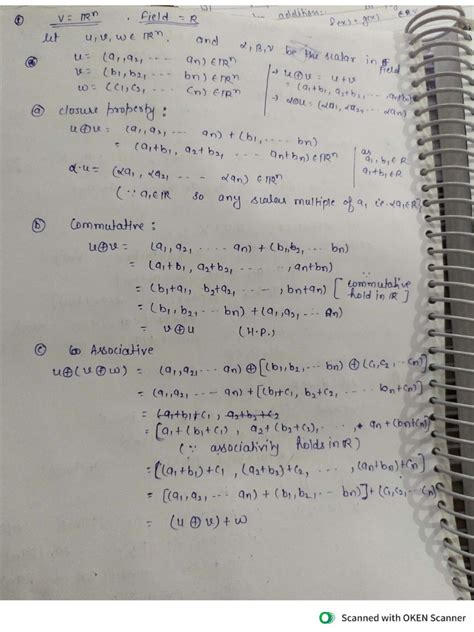 ① V = ℝⁿ , Field = R
addition:
let u, v, w ∈ ℝⁿ, and α, β, γ be the scalar in field
u = (a₁, a₂, ---- an) ∈ ℝⁿ
v = (b₁, b₂, ---- bn) ∈ ℝⁿ
w = (c₁, c₂, ---- cn) ∈ ℝⁿ
→ u⊕v = u+v
= (a₁+b₁, a₂+b₂, ---- an+bn)
→ α⊙u = (αa₁, αa₂, ---- αan)
ⓐ closure property :
u⊕v = (a₁, a₂, ---- an) + (b₁, ---- bn)
= (a₁+b₁, a₂+b₂, ---- an+bn) ∈ ℝⁿ
as a₁, b₁ ∈ R
a₁+b₁ ∈ R
α·u = (αa₁, αa₂, ---- αan) ∈ ℝⁿ
(∵ a₁ ∈ ℝ so any scalar multiple of a₁ i.e. αa₁ ∈ R)
ⓑ Commutative :
u⊕v = (a₁, a₂, ---- an) + (b₁, b₂, ---- bn)
= (a₁+b₁, a₂+b₂, ---- , an+bn)
= (b₁+a₁, b₂+a₂, ---- , bn+an) [∵ commutative hold in ℝ]
= (b₁, b₂, ---- bn) + (a₁, a₂, ---- an)
= v⊕u (H.P.)
ⓒ Associative
u⊕(v⊕w) = (a₁, a₂, ---- an) ⊕ [(b₁, b₂, ---- bn) ⊕ (c₁, c₂, -- cn)]
= (a₁, a₂, ---- an) + [(b₁+c₁, b₂+c₂, ---- bn+cn)]
= (a₁+b₁+c₁, a₂+b₂+c₂
= [a₁+(b₁+c₁), a₂+(b₂+c₂), ---- , an+(bn+cn)]
(∵ associativity holds in R)
= [(a₁+b₁)+c₁, (a₂+b₂)+c₂, ---- , (an+bn)+cn]
= [(a₁, a₂, ---- an) + (b₁, b₂, --- bn)] + (c₁, c₂, --- cn)
= (u⊕v)+w
Scanned with OKEN Scanner